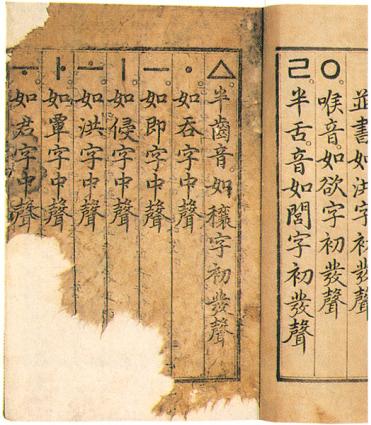 並書如洪字初發聲
ㅇ喉音如欲字初發聲
ㄹ半舌音如閭字初發聲
ㅿ半齒音如穰字初發聲
ㆍ如呑字中聲
ㅡ如即字中聲
ㅣ如侵字中聲
ㅗ如洪字中聲
ㅏ如覃字中聲
ㅜ如君字中聲